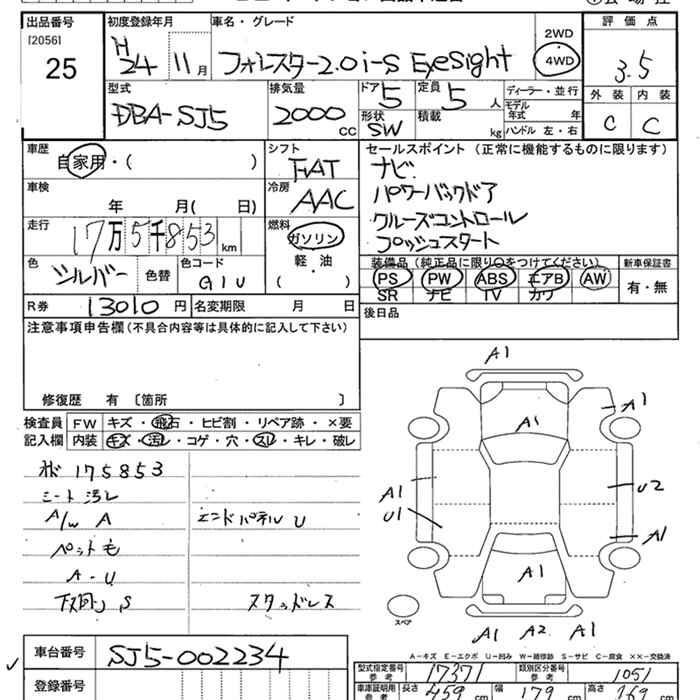 出品番号 初度登録年月 車名・グレード 評価点
[2056]
25
H24 11月 フォレスター2.0i-S EyeSight 2WD 4WD 3.5
型式 排気量 ドア 5 定員 5人 ディーラー・並行 外装 内装
DBA-SJ5 2000cc 形状 SW 積載 kg モデル年式 年 C C
ハンドル 左・右
車歴 シフト セールスポイント (正常に機能するものに限ります)
自家用・( ) FAT ナビ
車検 冷房 パワーバックドア
年 月( 日) AAC クルーズコントロール
走行 燃料 プッシュスタート
17万5千853km ガソリン
色 色替 色コード 軽・油 装備品(純正品に限り○をつけてください) 新車保証書
シルバー G1U ( ) PS PW ABS エアB AW 有・無
SR ナビ TV カワ
R券 13010円 名変期限 月 日 後日品
注意事項申告欄(不具合内容等は具体的に記入して下さい)
修復歴 有 [箇所 ]
検査員 FW キズ・飛石・ヒビ割・リペア跡・×要
記入欄 内装 キズ・汚レ・コゲ・穴・スレ・キレ・破レ
175853
シート汚レ
A/W A エンドパネル U
ペット毛
A-U
下廻り S スタッドレス
A1
A1 A1
A1 U2
U1 A1
A1
スペア
A1 A2 A1
A-キズ E-エクボ U-凹み W-補修跡 S-サビ C-腐食 ××-交換済
車台番号 SJ5-002234
型式指定番号 参考 17371 類別区分番号 参考 1051
登録番号
車庫証明用 参考 長さ 459cm 幅 179cm 高さ 169cm